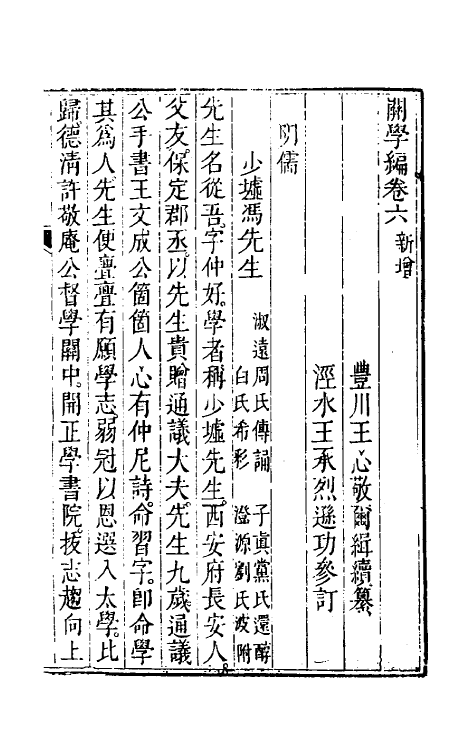 關學編卷六 新增
豐川王心敬爾緝續纂
涇水王承烈遜功參訂
明儒
少墟馮先生 淑遠周氏傳誦 子真黨氏還醇 白氏希彩 澄源劉氏波附
先生名從吾。字仲好。學者稱少墟先生。西安府長安人
父友。保定郡丞。以先生貴贈通議大夫。先生九歲。通議
公手書王文成公箇箇人心有仲尼詩。命習字。卽命學
其為人。先生便亹亹有願學志。弱冠以恩選入太學。比
歸。德清許敬庵公督學關中。開正學書院。拔志趨向上